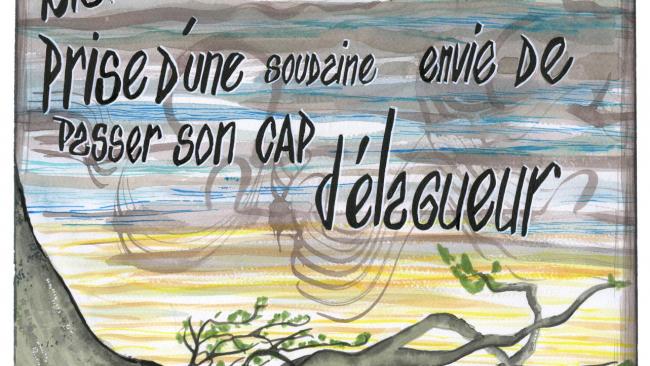 Prise D'une soudaine envie de
passer son CAP
d'élagueur